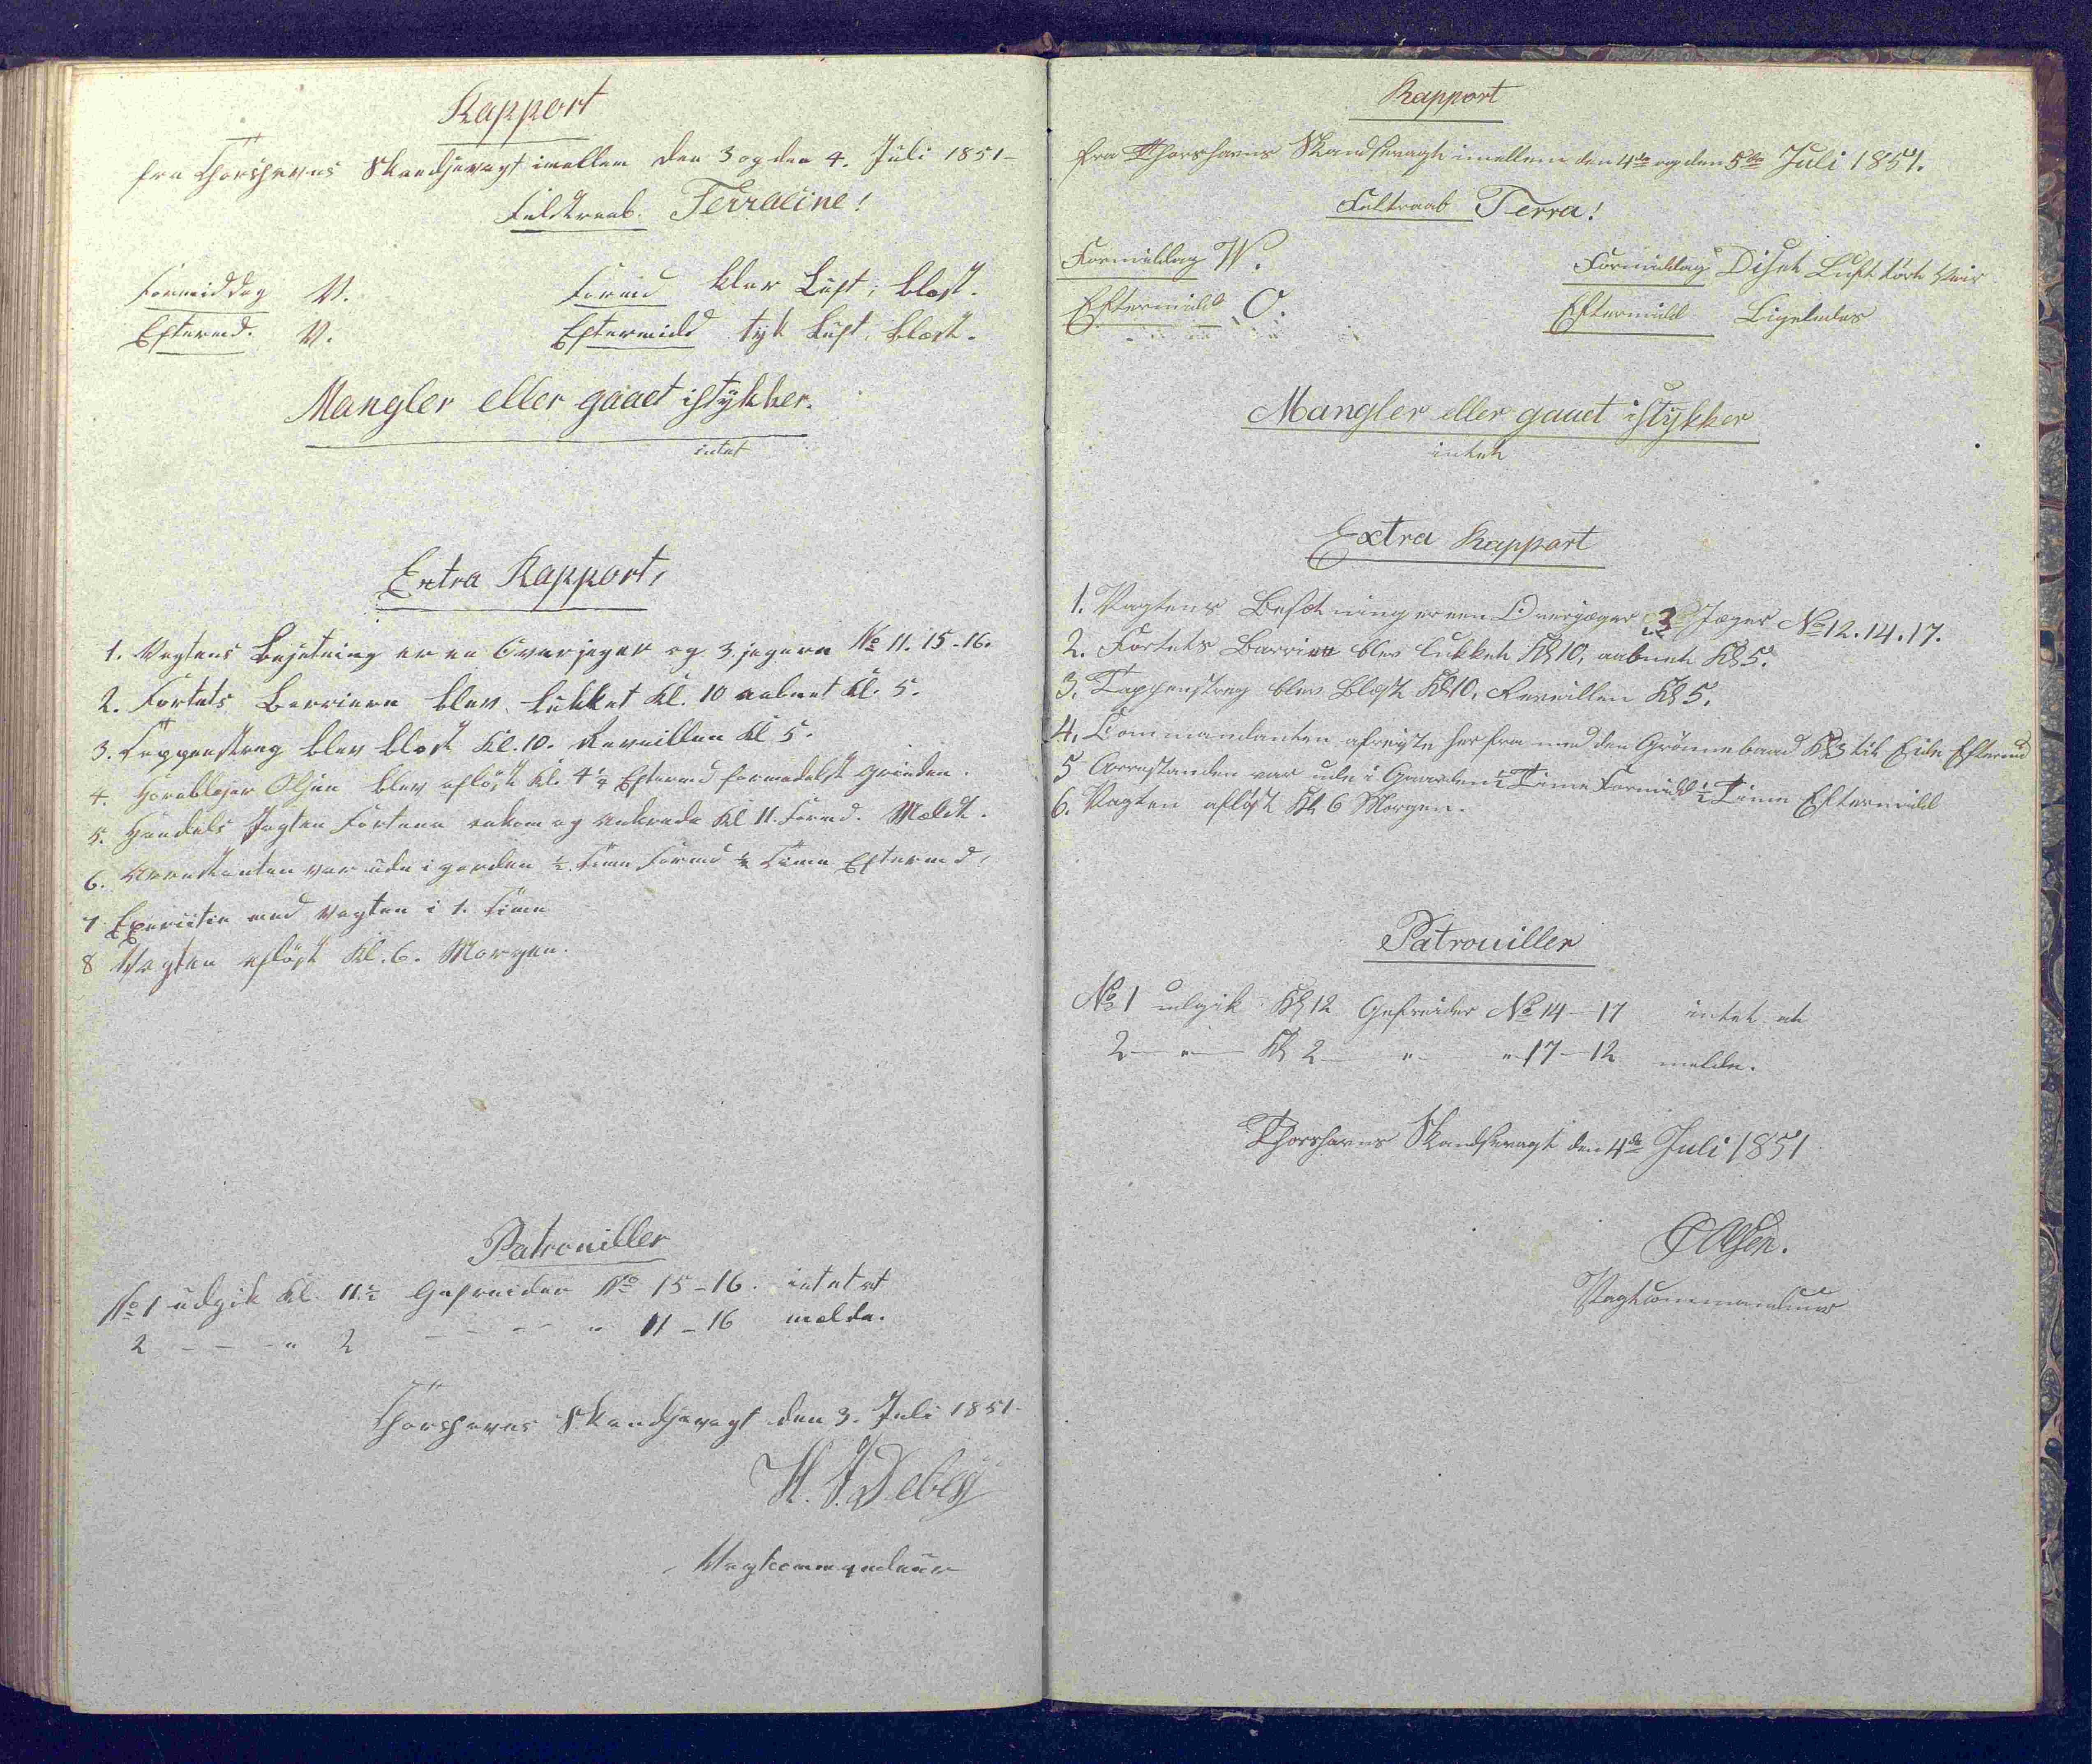 Rapport
fra Thorshavns Skandsevagt imellem den 3 og den 4. Juli 1851-
Feldtraab. Terracine!
Formiddag V. Formd klar Luft; blæst.
Eftermd. V. Eftermidd tyk Luft, blæst.
Mangler eller gaaet istykker.
intet
Extra Rapport,
1. Vagtens Besetning er en Overjeger og 3. jegere No 11. 15-16.
2. Fortets Barriere blev lukket Kl. 10 aabnet Kl. 5.
3. Tappenstreg blev blæst Kl. 10. Reveillen Kl 5.
4. Hornblæser Olsen blev afløst Kl. 4¼ Eftermd formedelst Grinden.
5. Handels Jagten Fortuna ankom og ankrede Kl 11. Formd. Meldt.
6. Arrestanten var ude i gaarden ½ Time Formd ½ Time Eftermd,
7 Exersitie med Vagten i 1. Time
8 Vagten afløst Kl. 6. Morgen.
Patrouiller
No 1 udgik Kl. 11½ Gefreider No 15-16. intet at
2 - - - " 2 - - - - " 11-16 melde.
Thorshavns Skandsevagt den 3. Juli 1851-
H. J. Debes
Vagtcommandeur
Rapport
fra Thorshavns Skandsevagt imellem den 4de og den 5te Juli 1851.
Feltraab Terra!
Formiddag W. Formiddag Diset Luft tørt Veir
Eftermidd O. Eftermidd Ligeledes
Mangler eller gaaet istykker
intet
Extra Rapport
1. Vagtens Besetning er een Overjæger 3 Jæger No 12. 14. 17.
2. Fortets Barriere blev lukket Kl 10, aabnet Kl 5.
3. Tappenstreg blev blæst Kl 10, Reveillen Kl 5.
4. Commandanten afreiste herfra med den Grønnebaad Kl 3 til Eide Eftermd
5 Arrestanden var ude i Gaarden ½ Time Formidd ½ Time Eftermidd
6. Vagten afløst Kl 6 Morgen.
Patrouiller
No 1 udgik Kl 12 Gefreider No 14-17 intet at
2 - " - Kl 2 - " - " 17-12 melde.
Thorshavns Skandsevagt den 4de Juli 1851
Olsen.
Vagtcommandeur